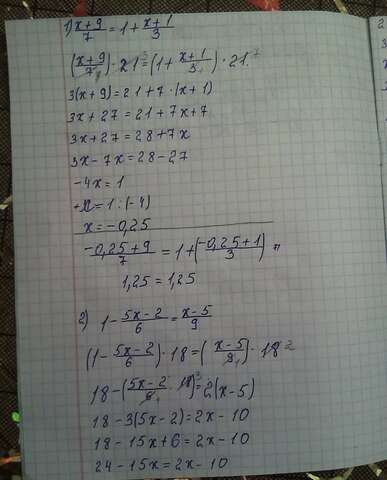 1) (x+9)/7 = 1 + (x+1)/3
((x+9)/7)·21 = (1 + (x+1)/3)·21
3(x+9) = 21 + 7·(x+1)
3x + 27 = 21 + 7x + 7
3x + 27 = 28 + 7x
3x - 7x = 28 - 27
-4x = 1
x = 1 : (-4)
x = -0,25
(-0,25+9)/7 = 1 + ((-0,25+1)/3)
1,25 = 1,25
2) 1 - (5x-2)/6 = (x-5)/9
(1 - (5x-2)/6)·18 = ((x-5)/9)·18
18 - ((5x-2)/6 · 18) = 2(x-5)
18 - 3(5x-2) = 2x - 10
18 - 15x + 6 = 2x - 10
24 - 15x = 2x - 10